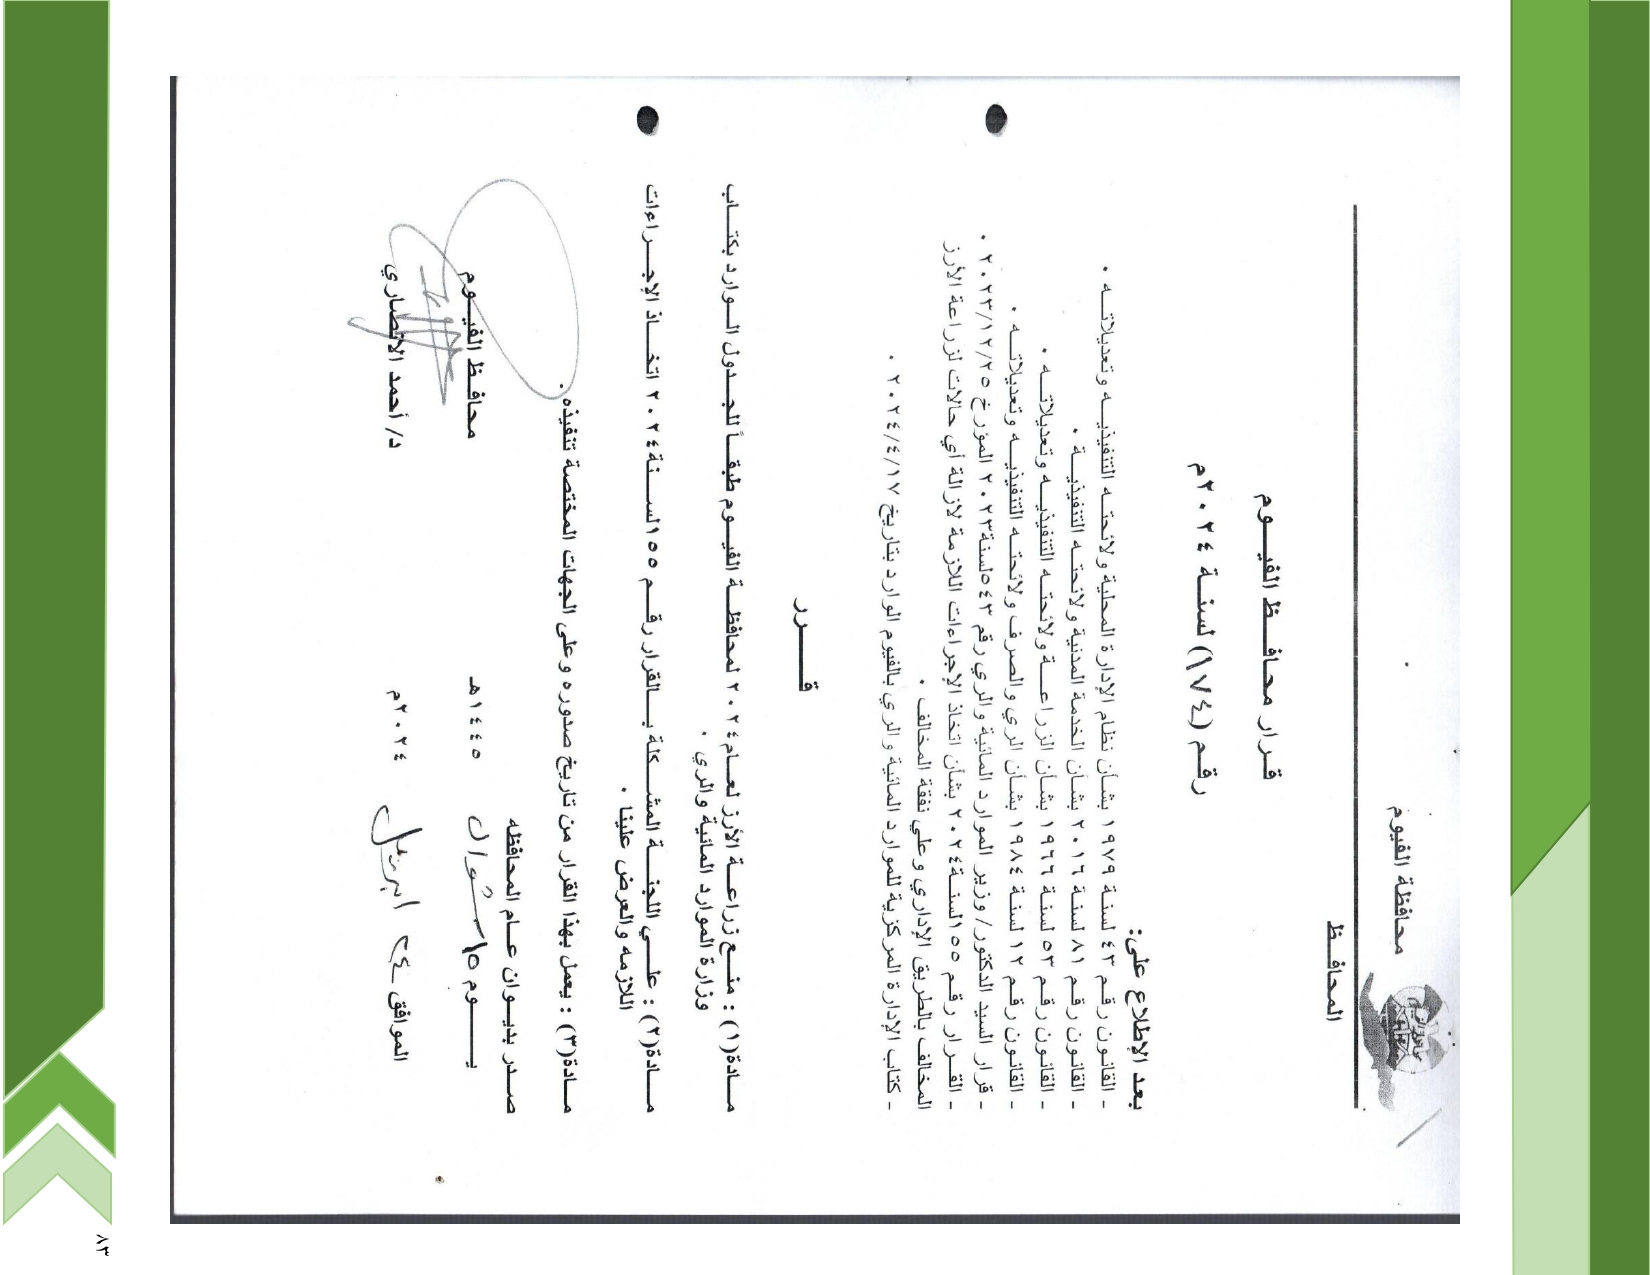 محافظة الفيوم
المحافـــظ
قـرار محـافـــظ الفيـــوم
رقـم (١٧٤) لسنـة ٢٠٢٤م
بعد الإطلاع على:
ـ القانـون رقـم ٤٣ لسنة ١٩٧٩ بشـأن نظام الإدارة المحلية ولائحتـه التنفيذيـه وتعديلاتـه .
ـ القانـون رقـم ٨١ لسنة ٢٠١٦ بشـأن الخدمة المدنية ولائحتـه التنفيذيـة .
ـ القانـون رقـم ٥٣ لسنـة ١٩٦٦ بشـأن الزراعـة ولائحتـه التنفيذيـه وتعديلاتـه .
ـ القانـون رقـم ١٢ لسنـة ١٩٨٤ بشـأن الري والصرف ولائحتـه التنفيذيـه وتعديلاتـه .
ـ قرار السيد الدكتور/ وزير الموارد المائية والري رقم ٥٤٣ لسنة ٢٠٢٣ المؤرخ ٢٠٢٣/١٢/٢٥ .
ـ القـرار رقـم ١٥٥ لسنـة ٢٠٢٤ بشأن اتخاذ الإجراءات اللازمة لازالة أي حالات لزراعة الأرز
المخالف بالطريق الإداري وعلي نفقة المخالف .
ـ كتاب الإدارة المركزية للموارد المائية والري بالفيوم الوارد بتاريخ ٢٠٢٤/٤/١٧ .
قـــرر
مـادة(١) : منـع زراعـة الأرز لعـام ٢٠٢٤ لمحافظـة الفيـوم طبقـاً للجـدول الـوارد بكتـاب
وزارة الموارد المائية والري .
مـادة(٢) : علـي اللجنـة المشـكلة بـالقرار رقـم ١٥٥ لسـنة ٢٠٢٤ اتخـاذ الإجـراءات
اللازمه والعرض علينا .
مـادة(٣) : يعمل بهذا القرار من تاريخ صدوره وعلى الجهات المختصة تنفيذه .
صـدر بديـوان عـام المحافظه
يـــوم ١٥ شوال ١٤٤٥هـ
الموافق ٢٤ ابريل ٢٠٢٤م
محافـظ الفيـوم
د/ أحمد الأنصاري
٨٣